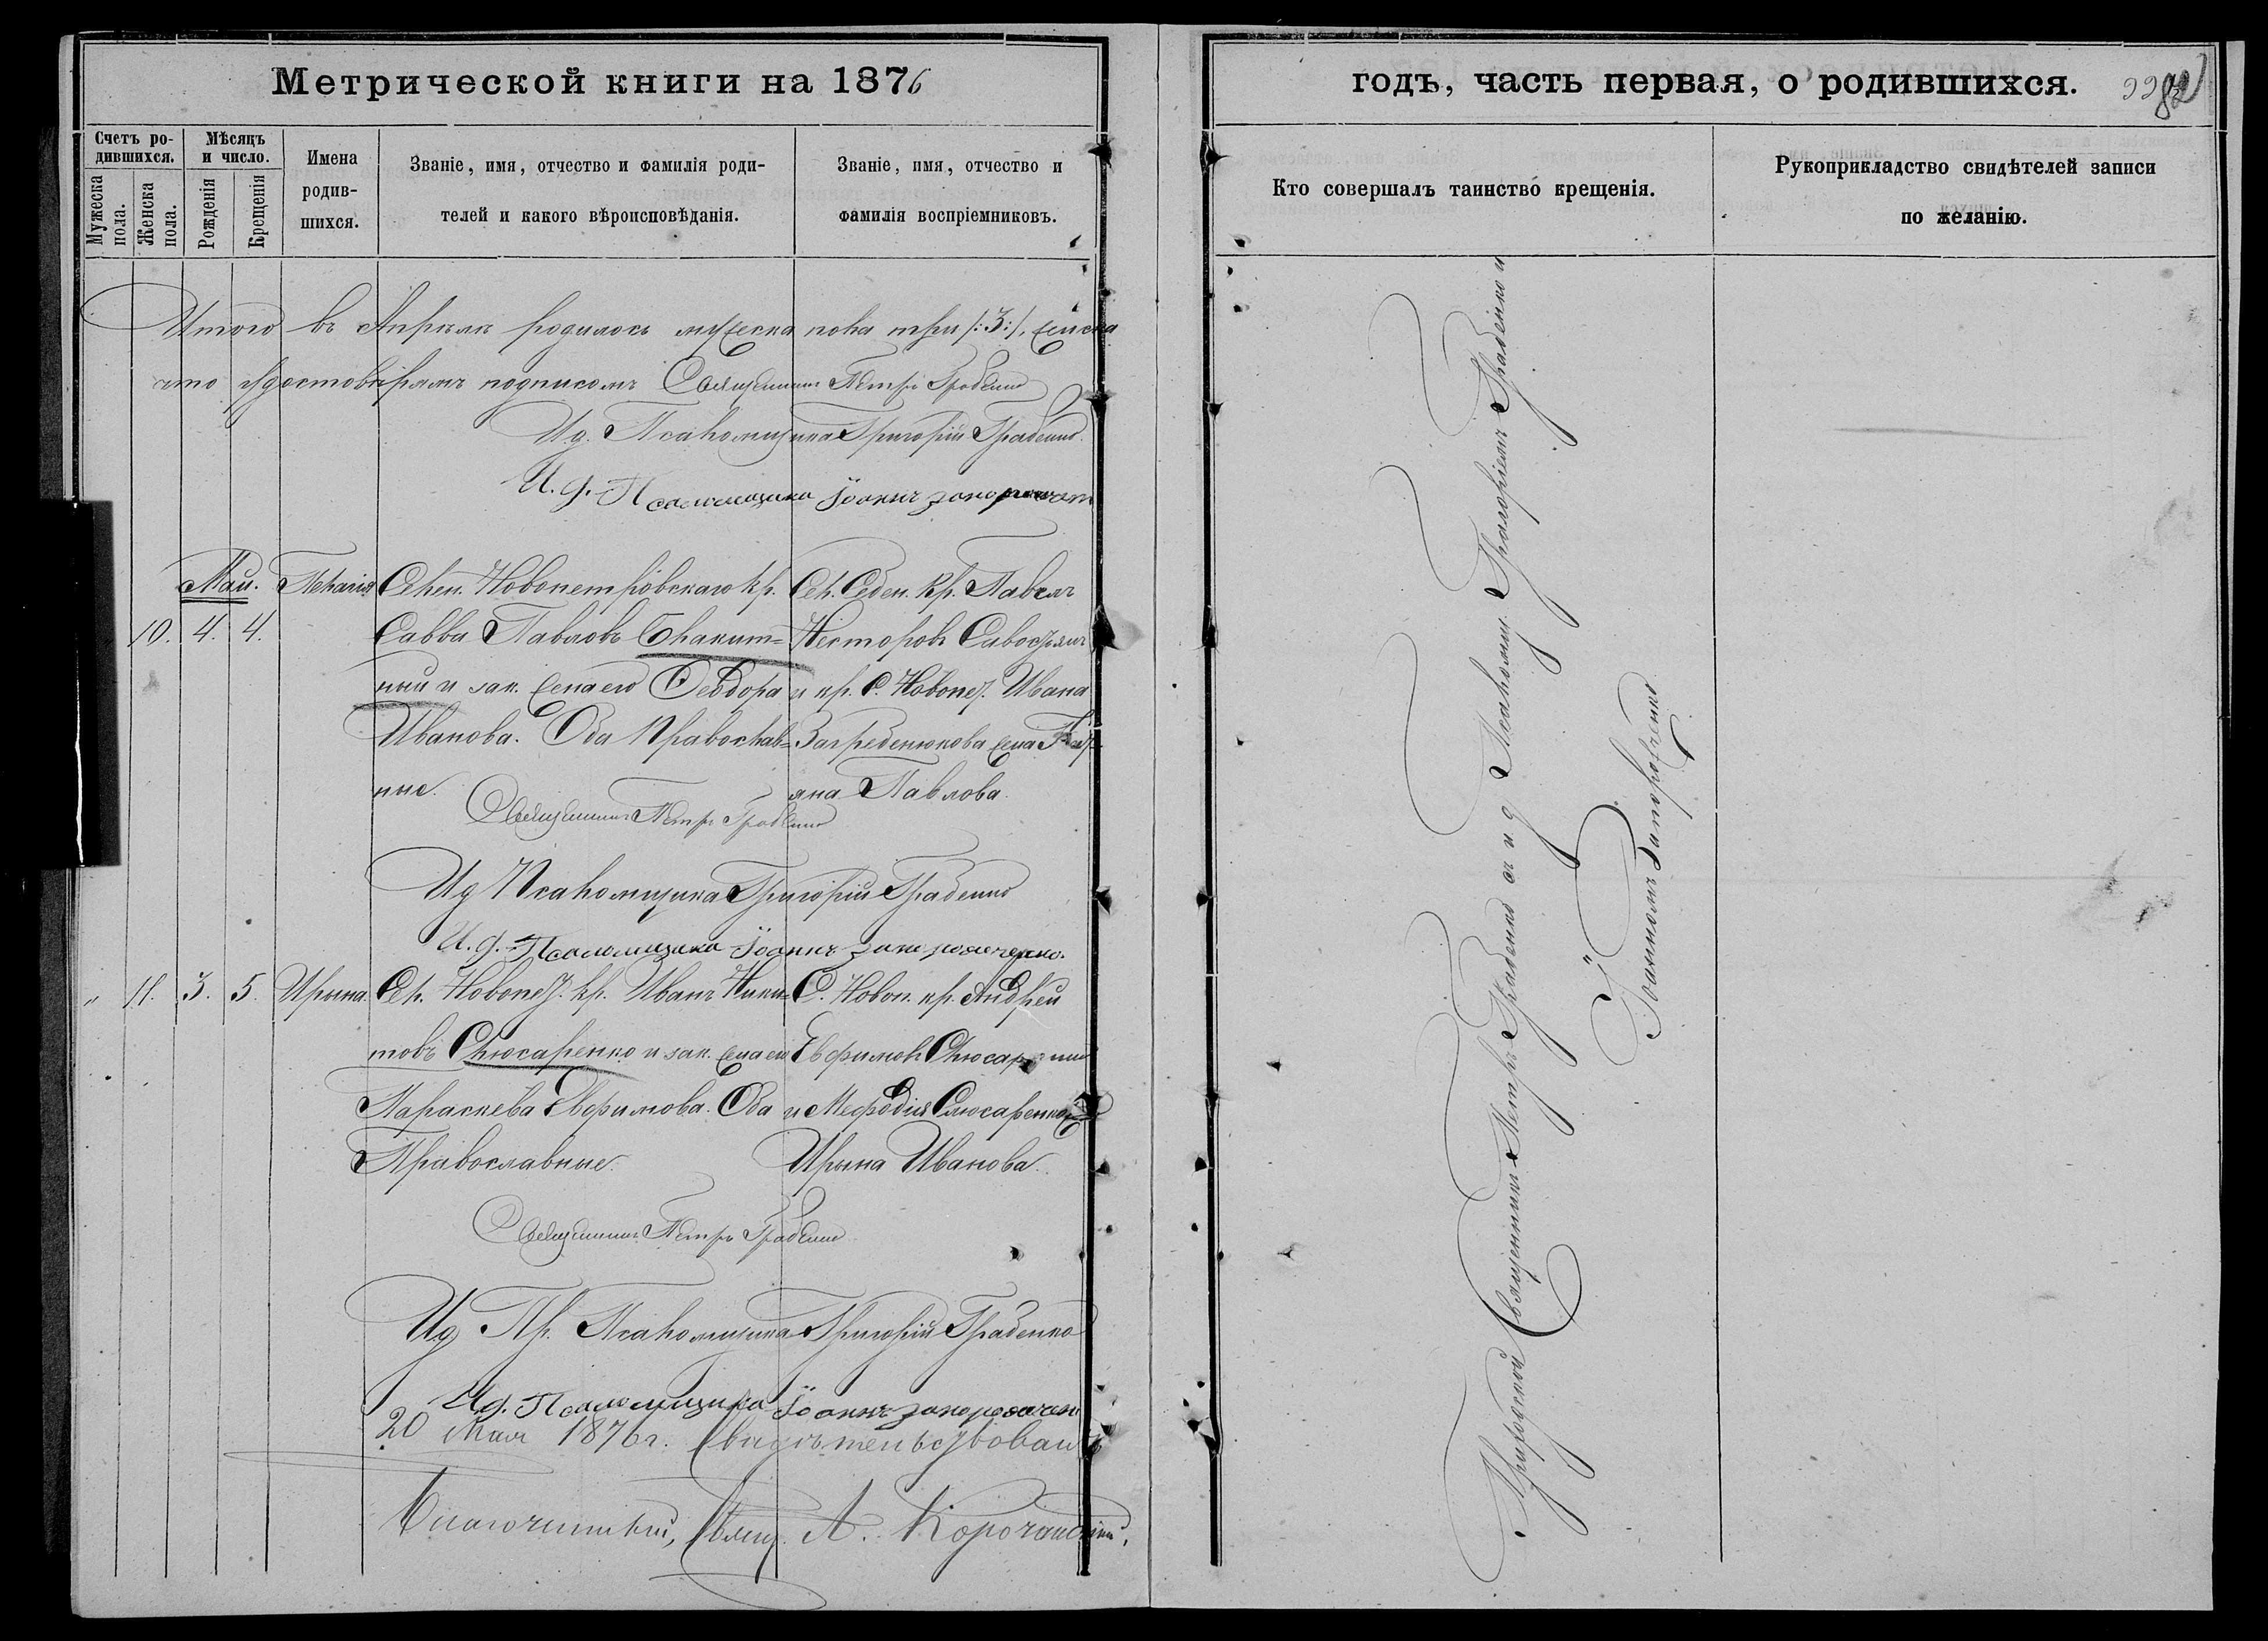 Метрической книги на 1876
годъ, часть первая, о родившихся.
Счетъ ро-
дившихся.
Мѣсяцъ
и число.
Мужеска
пола.
Женска
пола.
Рожденія
Крещенія
Имена
родив-
шихся.
Званіе, имя, отчество и фамилія роди-
телей и какого вѣроисповѣданія.
Званіе, имя, отчество и
фамилія воспріемниковъ.
Кто совершалъ таинство крещенія.
Рукоприкладство свидѣтелей записи
по желанію.
Итого въ Апрѣлѣ родилось мужеска пола три /:3:/, женска
что удостовѣряемъ подписомъ Священникъ Петръ Грабенко
И.д. Псаломщика Григорій Грабенко.
И.д. Псаломщика Іоаннъ
Май. Пелагія Селен. Новопетровскаго кр. Сел. кр. Павелъ
10. 4. 4. Савва Павловъ Блакит= Несторовъ
ный и зак. жена его Ѳеодора и кр. С. Новопет. Ивана
Иванова. Оба Православ= Загребенюкова жена
ные. Павлова.
Священникъ Петръ Грабенко
Ид Псаломщика Григорій Грабенко
И.д. Псаломщика Іоаннъ Запорожченко.
" 11. 3. 5. Ирына Сел. Новопет. кр. Иванъ Ники= С. Новоп. кр. Андрей
товъ Слюсаренко и зак. жена его Евфимовъ Слюсаренко
Параскева Евфимова. Оба и Меѳодія Слюсаренко
Православные. Ирына Иванова.
Священникъ Петръ Грабенко
Ид Пр. Псаломщика Григорій Грабенко
Ид. Псаломщика Іоаннъ
20 Мая 1876 г. Свидѣтельствовалъ
Благочинный, Свящ. А. Корочанскій.
Приходской Священникъ Петръ Грабенко съ и д Псаломщ. Григоріемъ Грабенко и
Іоанномъ Запорожченко